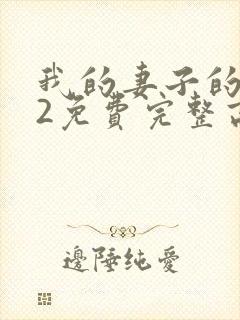 我的妻子的
2免費完整
邊陲纯愛